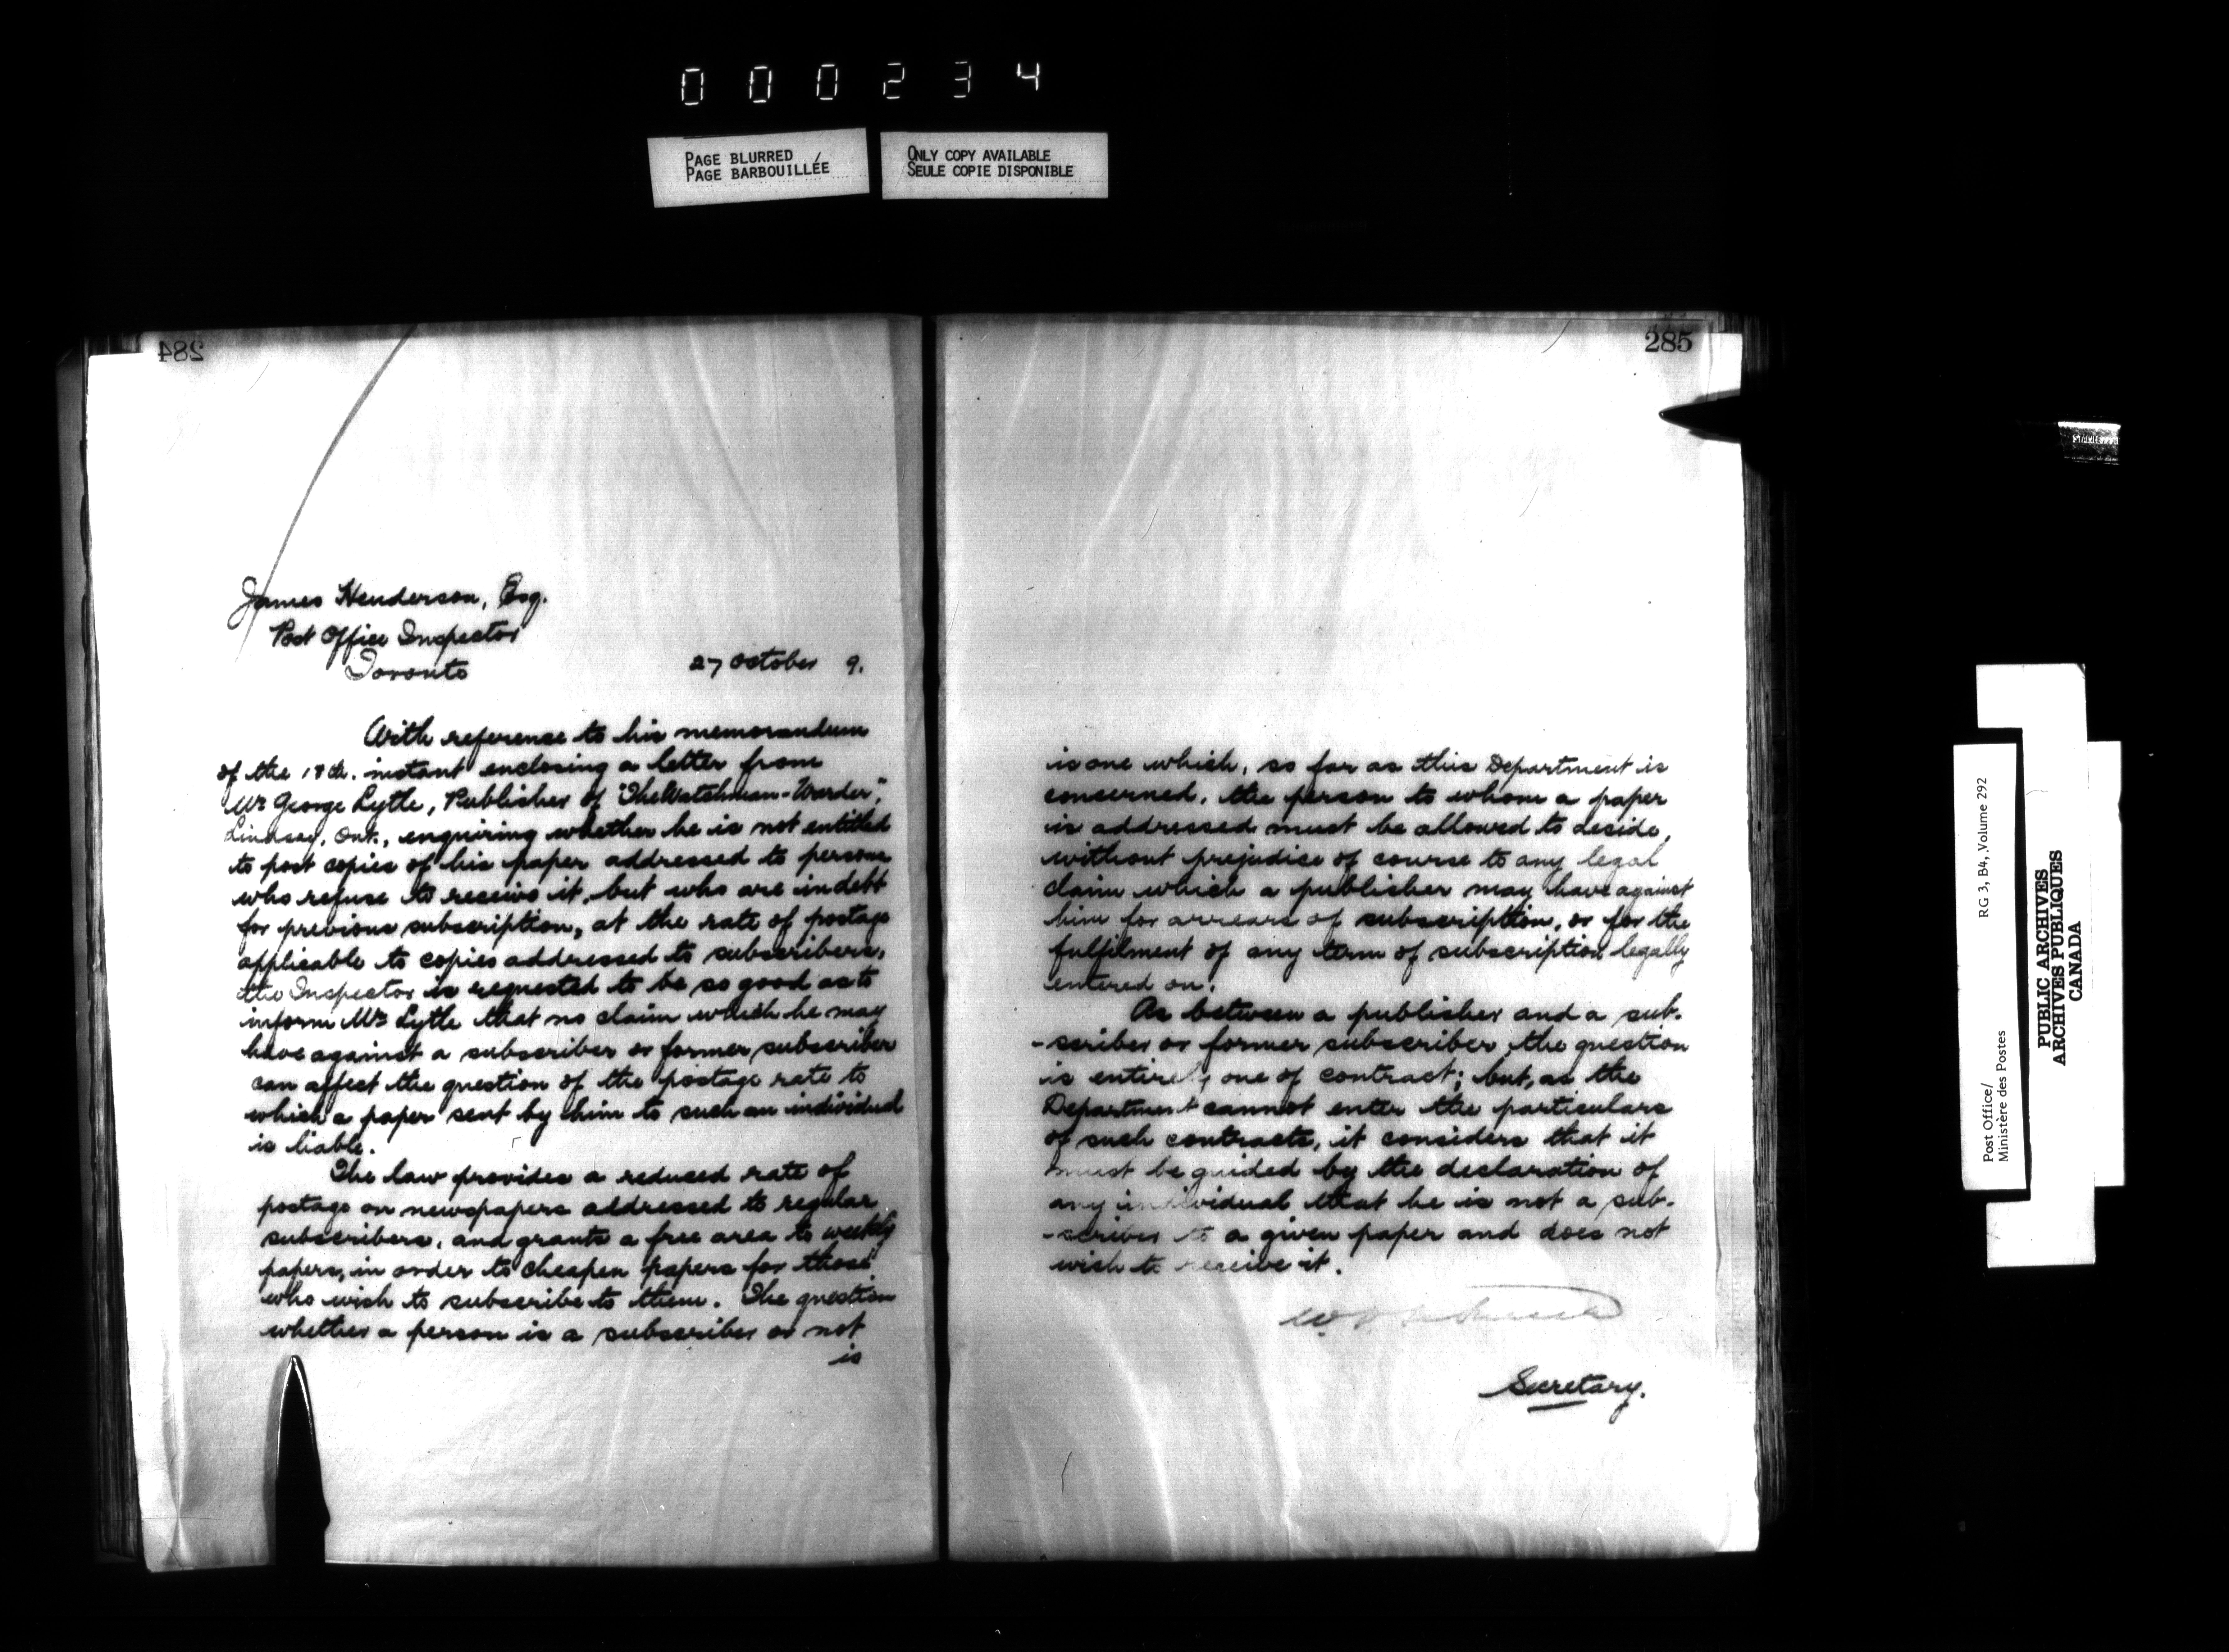 000234
PAGE BLURRED
PAGE BARBOUILLÉE
ONLY COPY AVAILABLE
SEULE COPIE DISPONIBLE
284
James Henderson, Esq.
Post Office Inspector
Toronto
27 October 9.
With reference to his memorandum
of the 18th. instant enclosing a letter from
Mr George Lytle, Publisher of "The Watchman-Warder",
Lindsay, Ont., enquiring whether he is not entitled
to post copies of his paper addressed to persons
who refuse to receive it, but who are in debt
for previous subscription, at the rate of postage
applicable to copies addressed to subscribers,
the Inspector is requested to be so good as to
inform Mr Lytle that no claim which he may
have against a subscriber or former subscriber
can affect the question of the postage rate to
which a paper sent by him to such an individual
is liable.
The law provides a reduced rate of
postage on newspapers addressed to regular
subscribers, and grants a free area to weekly
papers, in order to cheapen papers for those
who wish to subscribe to them. The question
whether a person is a subscriber or not
is
285
is one which, so far as this Department is
concerned, the person to whom a paper
is addressed must be allowed to decide,
without prejudice of course to any legal
claim which a publisher may have against
him for arrears of subscription, or for the
fulfilment of any term of subscription legally
entered on.
As between a publisher and a sub-
-scriber or former subscriber the question
is entirely one of contract; but, as the
Department cannot enter the particulars
of such contracts, it considers that it
must be guided by the declaration of
any individual that he is not a sub-
-scriber to a given paper and does not
wish to receive it.
Secretary.
Post Office/
Ministère des Postes
RG 3, B4, Volume 292
PUBLIC ARCHIVES
ARCHIVES PUBLIQUES
CANADA